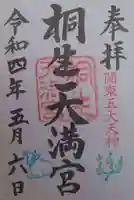 奉拝
関東五大天神
桐生天満宮
令和四年五月六日